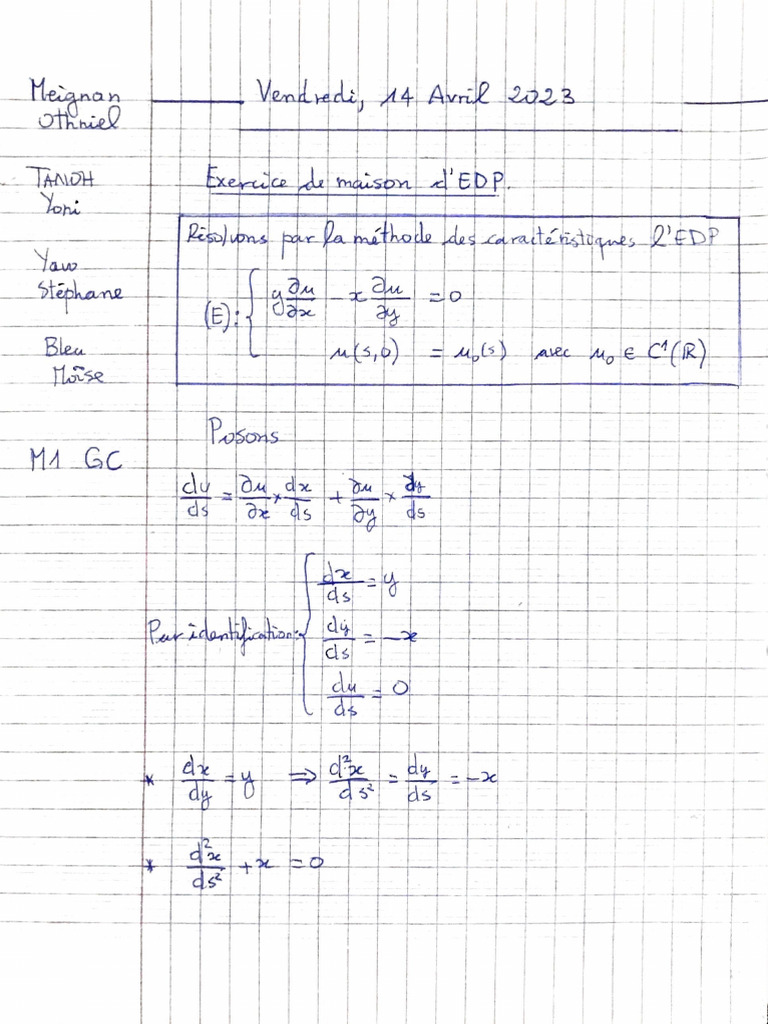 Meignan Othniel
Vendredi, 14 Avril 2023
TANOH Yoni
Exercice de maison d'EDP.
Résolvons par la méthode des caractéristiques l'EDP
Yavo Stéphane
(E): { y ∂u/∂x - x ∂u/∂y = 0
u(s,0) = u₀(s) avec u₀ ∈ C¹(ℝ)
Bleu Moïse
Posons
M1 GC
du/ds = ∂u/∂x × dx/ds + ∂u/∂y × dy/ds
Par identification: { dx/ds = y
dy/ds = -x
du/ds = 0
* dx/dy = y ⇒ d²x/ds² = dy/ds = -x
* d²x/ds² + x = 0